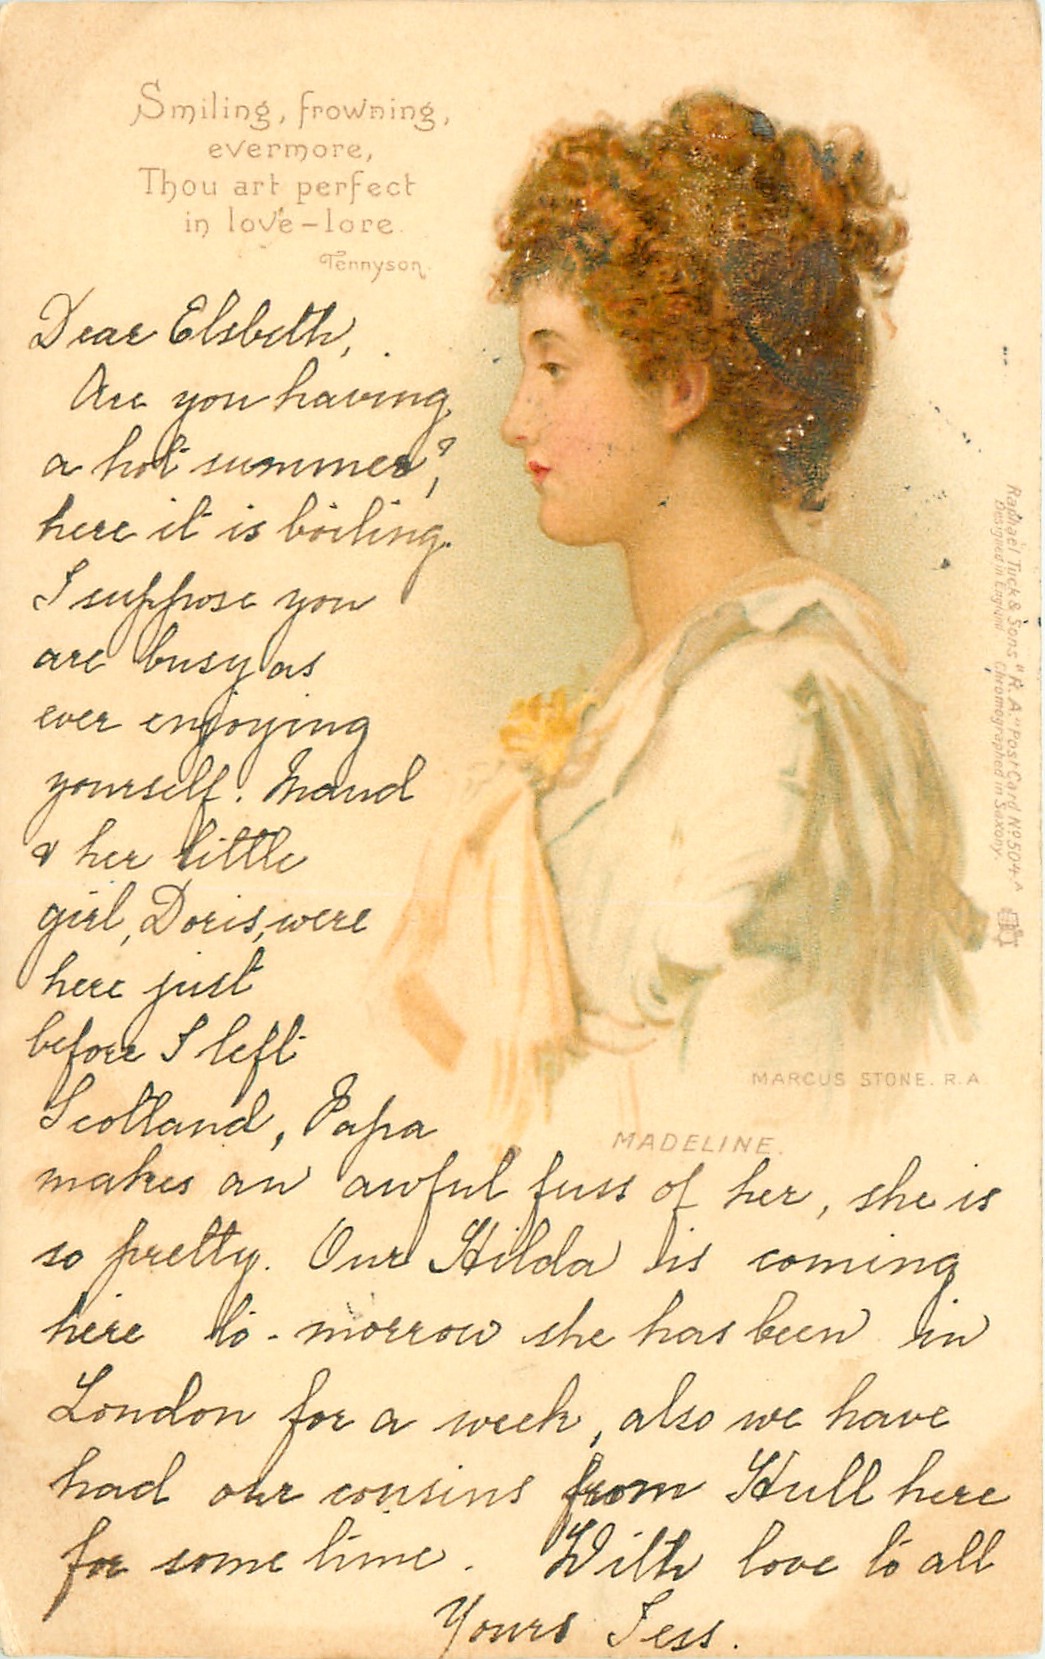 Smiling, frowning,
evermore,
Thou art perfect
in love-lore.
Tennyson.
Dear Elsbeth,
Are you having
a hot summer?
here it is boiling.
I suppose you
are busy as
ever enjoying
yourself. Maud
& her little
girl, Doris, were
here just
before I left
Scotland, Papa
makes an awful fuss of her, she is
so pretty. Our Hilda is coming
here to-morrow she has been in
London for a week, also we have
had our cousins from Hull here
for some time. With love to all
Yours Jess.
MARCUS STONE. R.A
MADELINE.
Raphael Tuck & Sons "R.A." Post Card Nº 504
Designed in England Chromographed in Saxony.